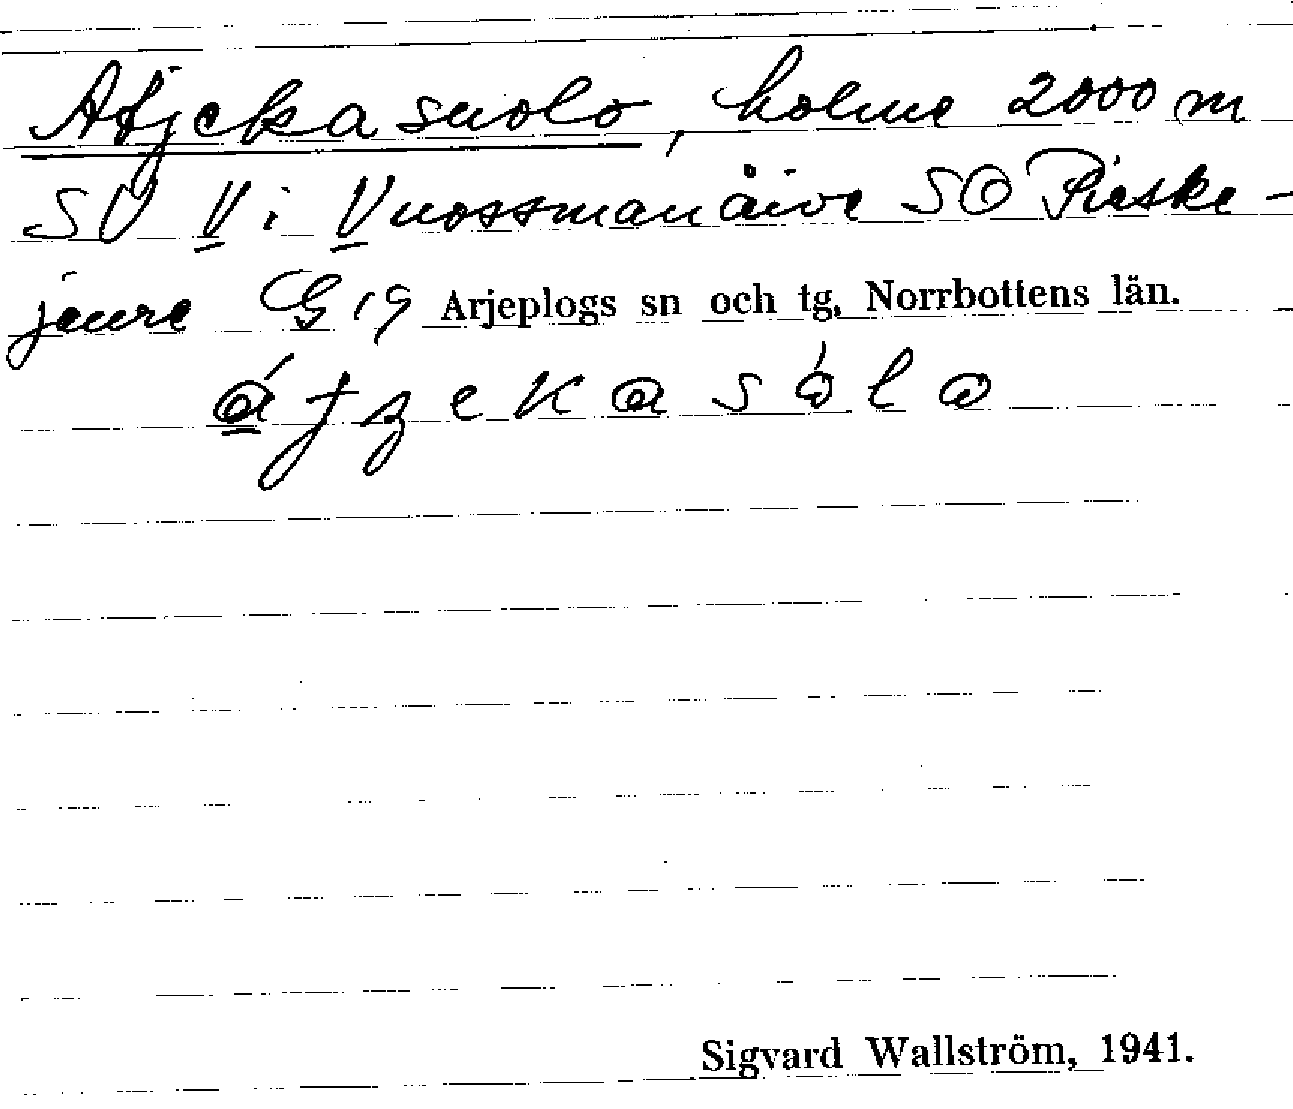 Atjekasuolo, holme 2000 m
SV V i Vuossmanäive SO Pieske-
jaure G 19 Arjeplogs sn och tg, Norrbottens län.
átzekasåla
Sigvard Wallström, 1941.